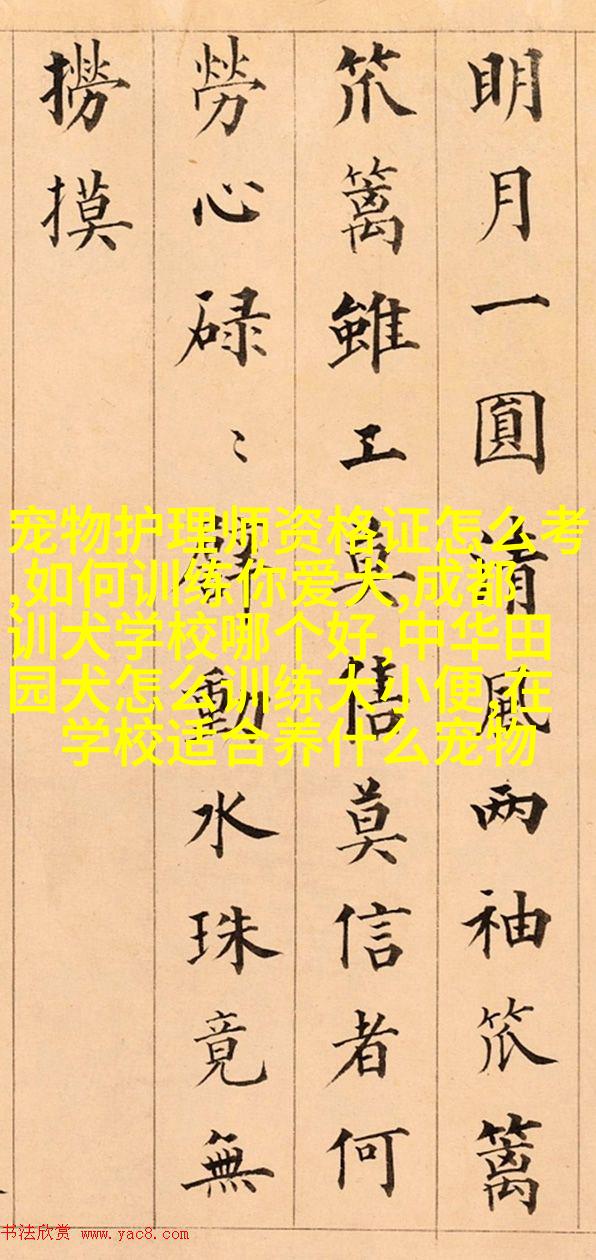 明月一圓清風两袖笊篱
笊篱雖工莫信莫信者何
勞心碌〻動水珠竟無
撈摸
宠物护理师资格证怎么考
,如何训练你爱犬,成都
训犬学校哪个好,中华田
园犬怎么训练大小便,在
学校适合养什么宠物
书法欣赏 www.yac8.com